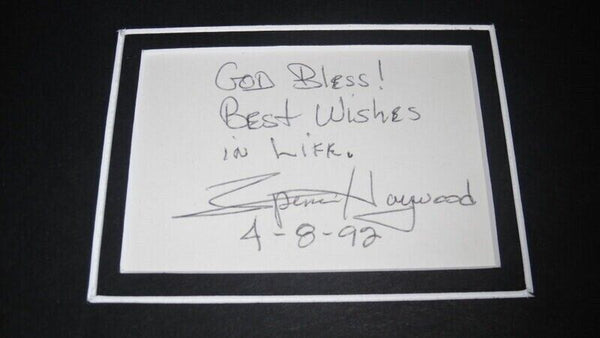 God Bless!
Best Wishes
in Life.
Spencer Haywood
4-8-92